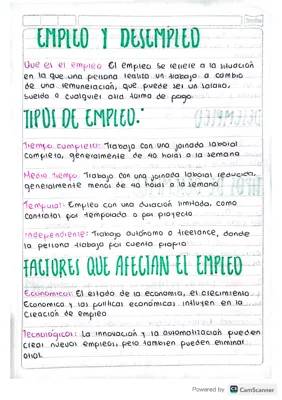 EMPLEO Y DESEMPLEO
Que es el empleo El empleo se refiere a la situación
en la que una persona realiza un trabajo a cambio
de una remuneración, que puede ser un salario,
sueldo o cualquier otra forma de pago.
TIPOS DE EMPLEO.
Tiempo completo: Trabajo con una jornada laboral
completa, generalmente de 40 horas a la semana
Medio tiempo: Trabajo con una jornada laboral reducida,
generalmente menos de 40 horas a la semana
Temporal: Empleo con una duración limitada, como
contratos por temporada o por proyecto
Independiente: Trabajo autónomo o freelance, donde
la persona trabaja por cuenta propia
FACTORES QUE AFECTAN EL EMPLEO
Económicos: El estado de la economía, el crecimiento
Económico y las políticas económicas influyen en la
Creación de empleo
Tecnológicos: La innovación y la automatización pueden
crear nuevos empleos, pero también pueden eliminar
otros.
Powered by CS CamScanner